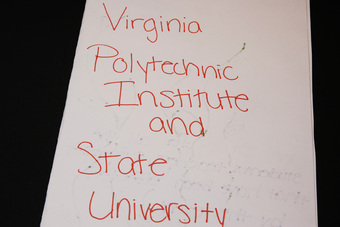 Virginia
Polytechnic
Institute
and
State
University